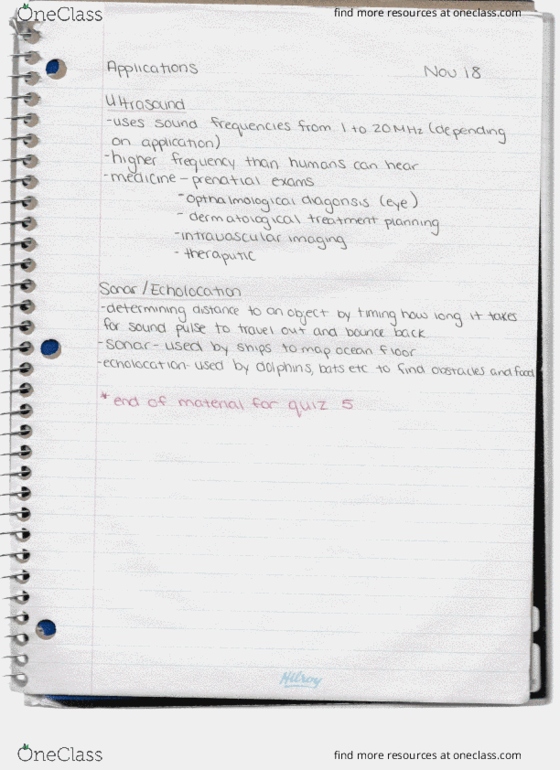 OneClass
find more resources at oneclass.com
Applications
Nov 18
Ultrasound
-uses sound frequencies from 1 to 20MHz (depending
on application)
-higher frequency than humans can hear
-medicine - prenatial exams
- opthalmological diagonsis (eye)
- dermatological treatment planning
-intravascular imaging
- theraputic
Sonar / Echolocation
-determining distance to an object by timing how long it takes
for sound pulse to travel out and bounce back
-sonar - used by ships to map ocean floor
-echolocation- used by dolphins, bats etc to find obstacles and food
* end of material for quiz 5
Hilroy
OneClass
find more resources at oneclass.com